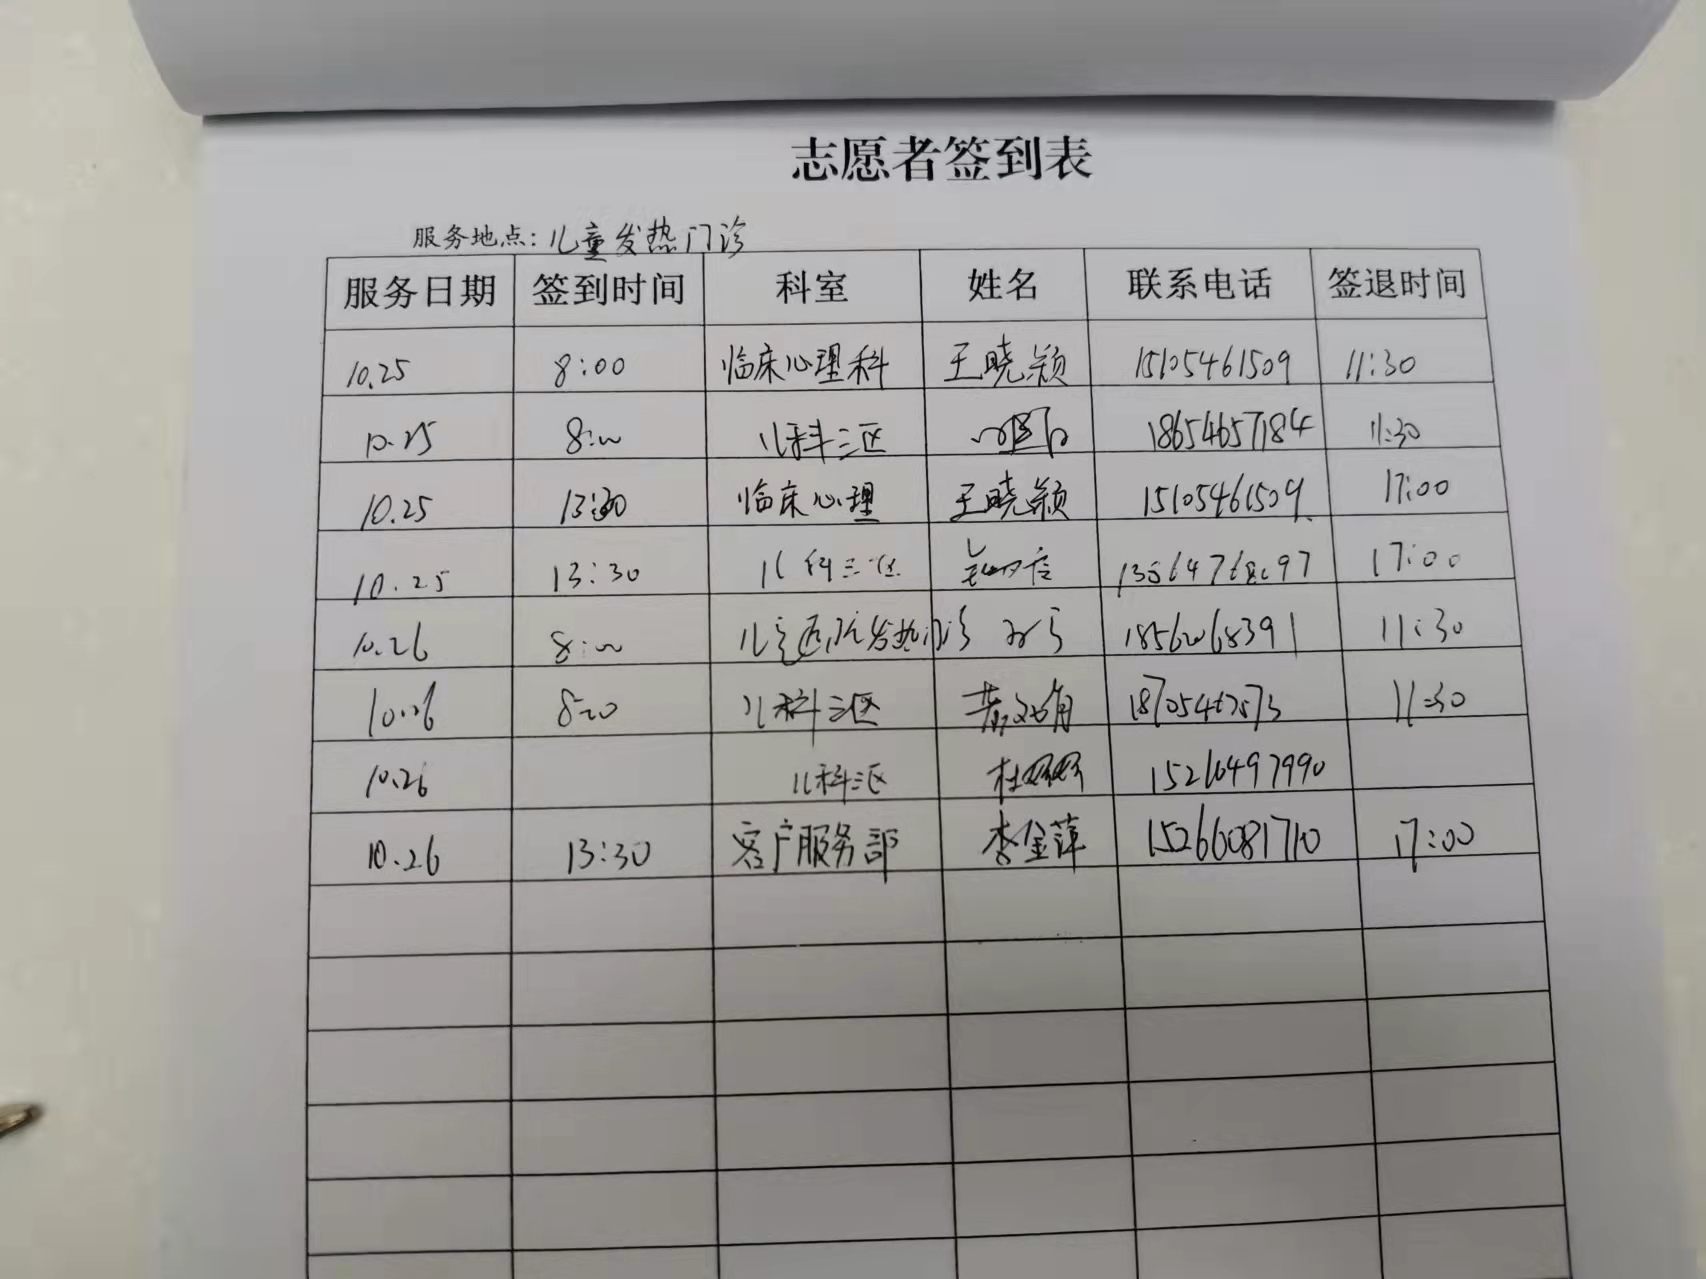 志愿者签到表
服务地点：儿童发热门诊
服务日期 签到时间 科室 姓名 联系电话 签退时间
10.25 8:00 临床心理科 王晓颖 15105461509 11:30
10.25 8:00 儿科三区 18654657184 11:30
10.25 13:30 临床心理 王晓颖 15105461509 17:00
10.25 13:30 儿科三区 17:00
10.26 8:00 18562068391 11:30
10.26 8:00 儿科三区 11:30
10.26 儿科三区 15216497990
10.26 13:30 客户服务部 李金萍 15266081710 17:00